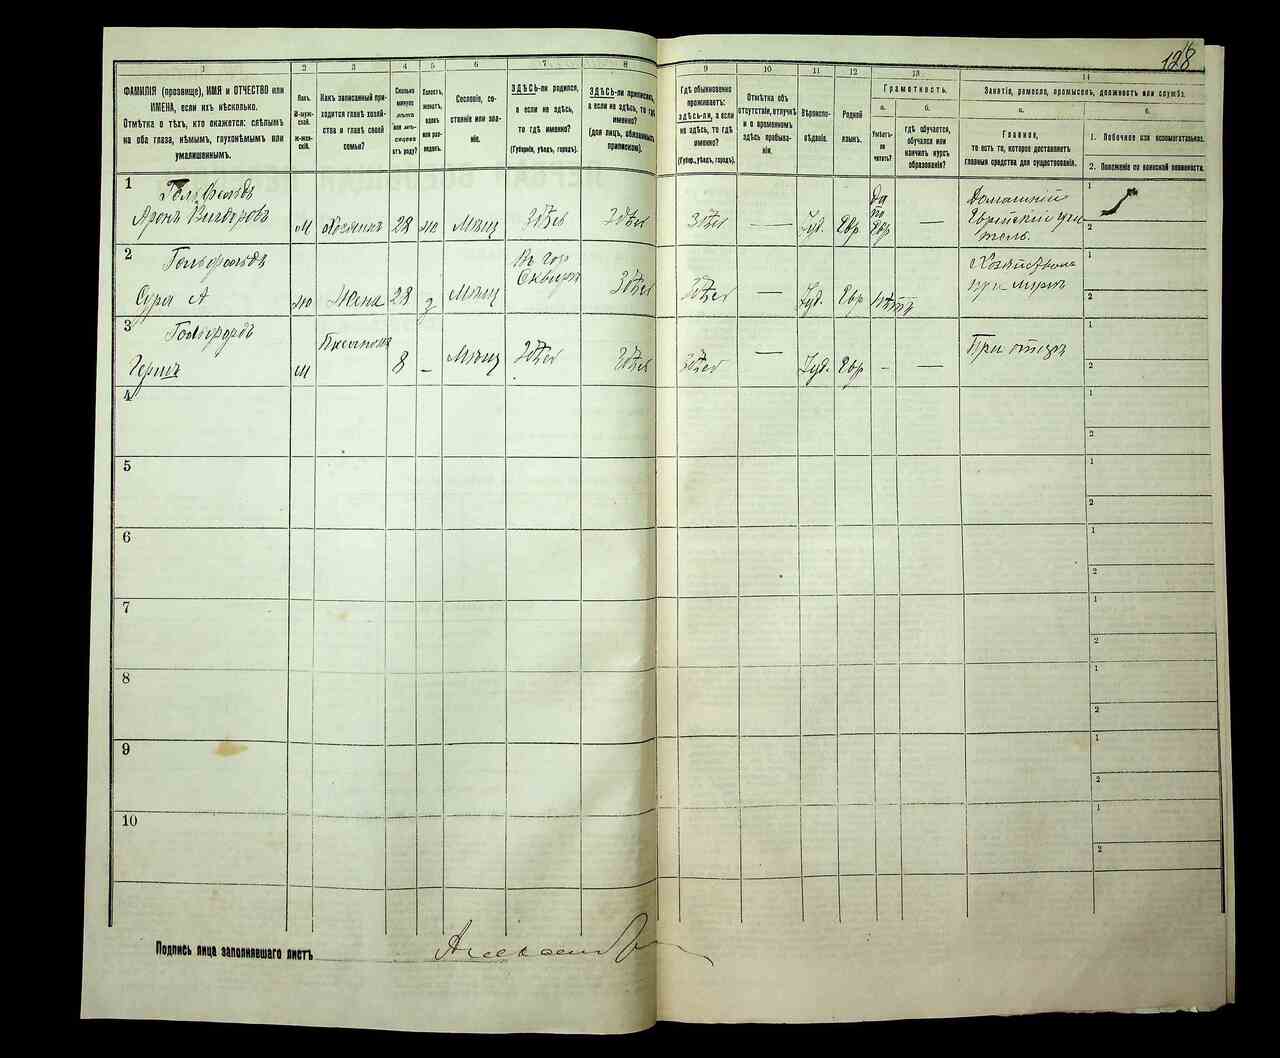 128
1 2 3 4 5 6 7 8 9 10 11 12 13 14
ФАМИЛІЯ (прозвище), ИМЯ и ОТЧЕСТВО или
ИМЕНА, если ихъ нѣсколько.
Отмѣтка о тѣхъ, кто окажется: слѣпымъ
на оба глаза, нѣмымъ, глухонѣмымъ или
умалишеннымъ.
Полъ.
М-муж-
ской.
Ж-жен-
скій.
Какъ записанный при-
ходится главѣ хозяй-
ства и главѣ своей
семьи?
Сколько
минуло
лѣтъ
или мѣс-
яцевъ
отъ роду?
Холостъ,
женатъ,
вдовъ
или раз-
веденъ.
Сословіе, со-
стояніе или зва-
ніе.
ЗДѢСЬ-ли родился,
а если не здѣсь,
то гдѣ именно?
(Губернія, уѣздъ, городъ).
ЗДѢСЬ-ли приписанъ,
а если не здѣсь, то гдѣ
именно?
(для лицъ, обязанныхъ
припискою).
Гдѣ обыкновенно
проживаетъ:
здѣсь-ли, а если
не здѣсь, то гдѣ
именно?
(Губер., уѣздъ, городъ).
Отмѣтка объ
отсутствіи, отлучкѣ
и о временномъ
здѣсь пребыва-
ніи.
Вѣроиспо-
вѣданіе.
Родной
языкъ.
Грамотность.
а.
Умѣетъ-
ли
читать?
б.
гдѣ обучается,
обучался или
кончилъ курсъ
образованія?
Занятія, ремесло, промыселъ, должность или служба.
а.
Главное,
то есть то, которое доставляетъ
главныя средства для существованія.
б.
1. Побочное или вспомогательное.
2. Положеніе по воинской повинности.
1
Гольфельдъ
Аронъ
м Хозяинъ 28 ж Мѣщ Здѣсь Здѣсь Здѣсь — Іуд. Евр Да по Евр —
Домашній
Еврейскій учи
тель.
1
2
2
Гольфельдъ
Сура А
ж Жена 28 з Мѣщ Въ гор Сквирѣ Здѣсь Здѣсь — Іуд. Евр нѣтъ
при мужѣ
1
2
3
Гершъ
м 8 — Мѣщ Здѣсь Здѣсь Здѣсь — Іуд. Евр - —
При отцѣ
1
2
4
1
2
5
1
2
6
1
2
7
1
2
8
1
2
9
1
2
10
1
2
Подпись лица заполнявшаго листъ